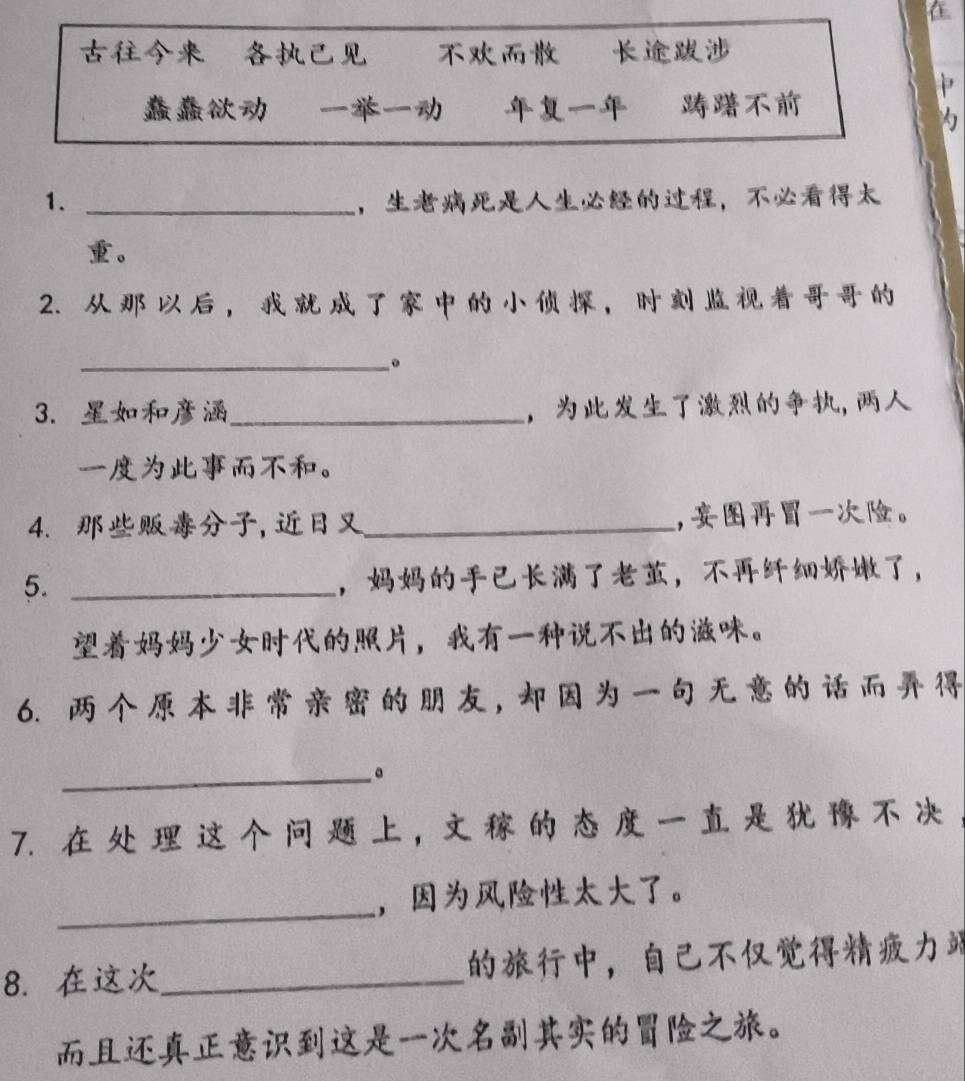 古往今来 各执己见 不欢而散 长途跋涉
蠢蠢欲动 一举一动 年复一年 踌躇不前
1. ，生老病死是人生必经的过程，不必看得太
重。
2. 从那以后，我就成了家中的小侦探，时刻监视着哥哥的
。
3. 星如和彦涵 ，为此发生了激烈的争执，两人
一度为此事而不和。
4. 那些贩毒分子，近日又 ，妄图再冒一次险。
5. ，妈妈的手已长满了老茧，不再纤细娇嫩了，
望着妈妈少女时代的照片，我有一种说不出的滋味。
6. 两个原本非常亲密的朋友，却因为一句无意的话而弄得
。
7. 在处理这个问题上，文稼的态度一直是犹豫不决
，因为风险性太大了。
8. 在这次 的旅行中，自己不仅觉得精疲力
而且还真正意识到这是一次名副其实的冒险之旅。
在
中